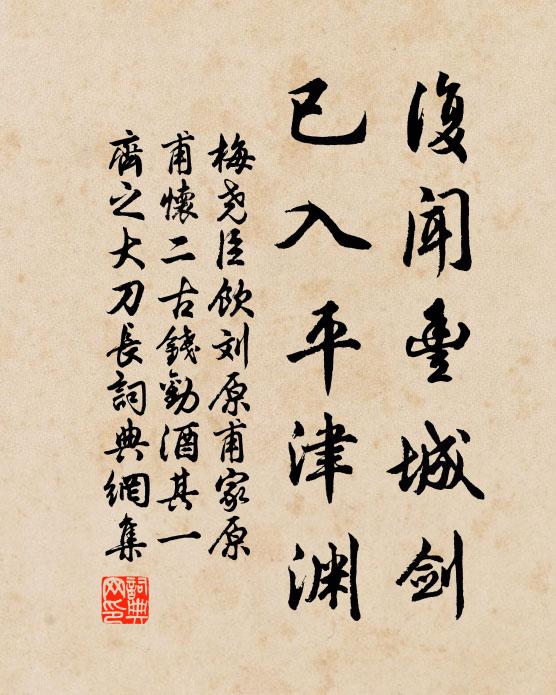 復聞豐城剑
已入平津渊
梅尧臣饮刘原甫家原
甫懷二古錢勸酒其一
齊之大刀長詞典網集
詞典网印